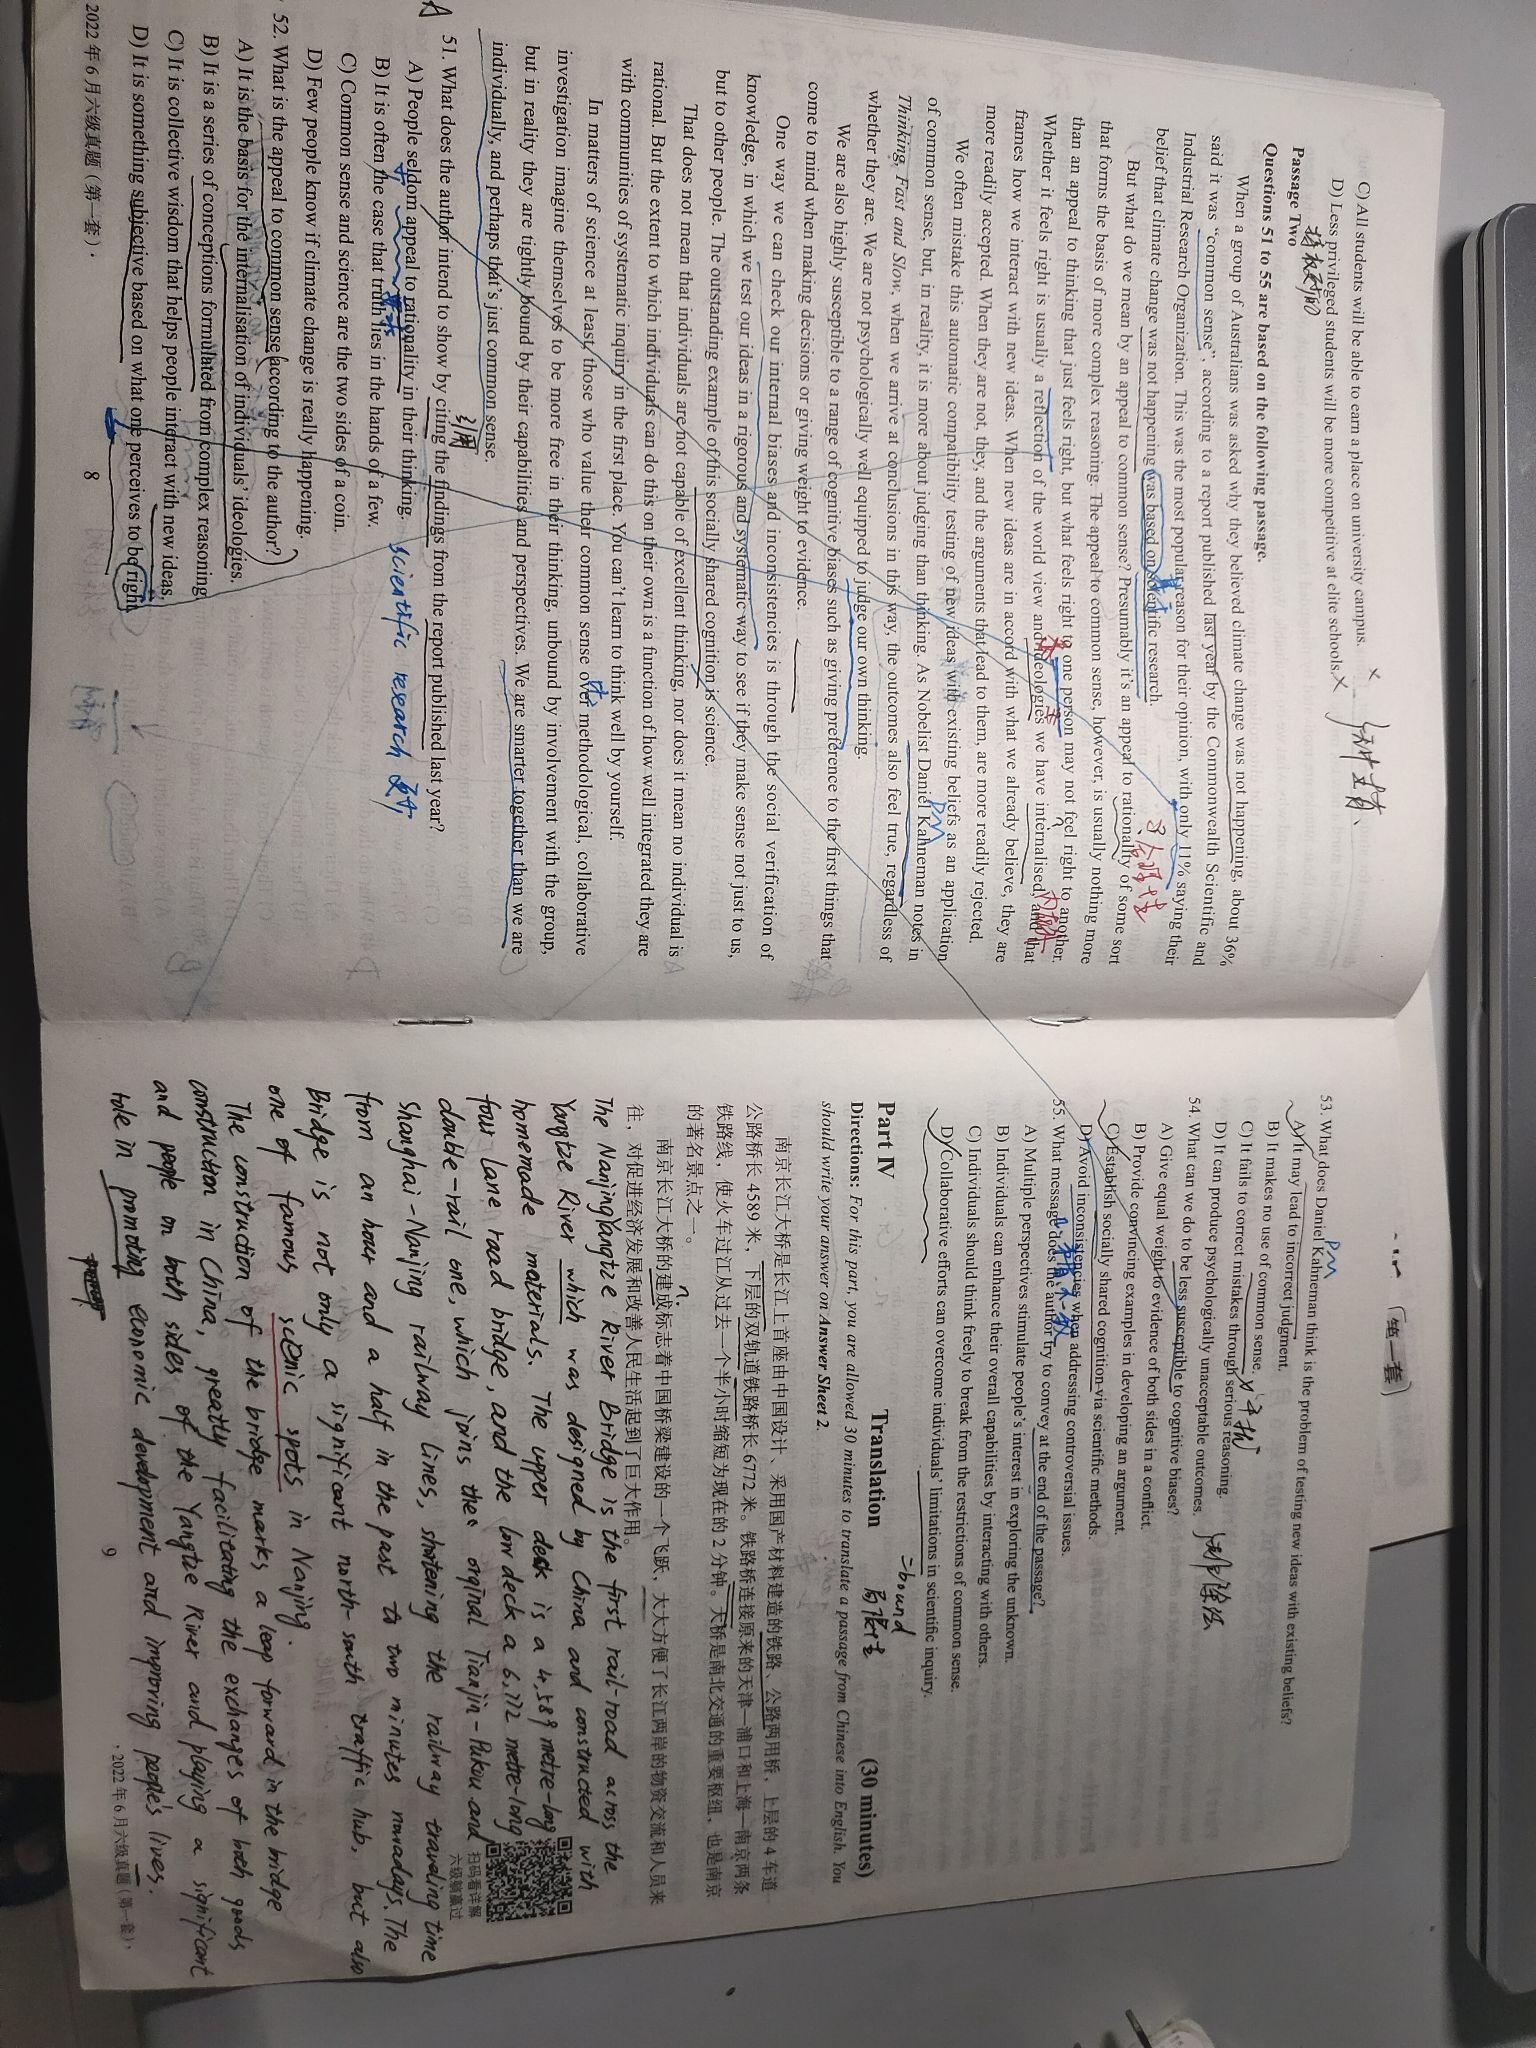 C) All students will be able to earn a place on university campus. ×
D) Less privileged students will be more competitive at elite schools. ×
Passage Two
Questions 51 to 55 are based on the following passage.
When a group of Australians was asked why they believed climate change was not happening, about 36%
said it was "common sense", according to a report published last year by the Commonwealth Scientific and
Industrial Research Organization. This was the most popular reason for their opinion, with only 11% saying their
belief that climate change was not happening was based on scientific research.
不合理性
But what do we mean by an appeal to common sense? Presumably it's an appeal to rationality of some sort
that forms the basis of more complex reasoning. The appeal to common sense, however, is usually nothing more
than an appeal to thinking that just feels right, but what feels right to one person may not feel right to another.
Whether it feels right is usually a reflection of the world view and ideologies we have internalised, and that
frames how we interact with new ideas. When new ideas are in accord with what we already believe, they are
more readily accepted. When they are not, they, and the arguments that lead to them, are more readily rejected.
We often mistake this automatic compatibility testing of new ideas with existing beliefs as an application
of common sense, but, in reality, it is more about judging than thinking. As Nobelist Daniel Kahneman notes in
Thinking, Fast and Slow, when we arrive at conclusions in this way, the outcomes also feel true, regardless of
whether they are. We are not psychologically well equipped to judge our own thinking.
We are also highly susceptible to a range of cognitive biases such as giving preference to the first things that
come to mind when making decisions or giving weight to evidence.
One way we can check our internal biases and inconsistencies is through the social verification of
knowledge, in which we test our ideas in a rigorous and systematic way to see if they make sense not just to us,
but to other people. The outstanding example of this socially shared cognition is science.
That does not mean that individuals are not capable of excellent thinking, nor does it mean no individual is
rational. But the extent to which individuals can do this on their own is a function of how well integrated they are
with communities of systematic inquiry in the first place. You can't learn to think well by yourself.
In matters of science at least, those who value their common sense over methodological, collaborative
investigation imagine themselves to be more free in their thinking, unbound by involvement with the group,
but in reality they are tightly bound by their capabilities and perspectives. We are smarter together than we are
individually, and perhaps that's just common sense.
引用
A
51. What does the author intend to show by citing the findings from the report published last year?
A) People seldom appeal to rationality in their thinking. scientific research
B) It is often the case that truth lies in the hands of a few.
C) Common sense and science are the two sides of a coin.
D) Few people know if climate change is really happening.
52. What is the appeal to common sense according to the author?
A) It is the basis for the internalisation of individuals' ideologies.
B) It is a series of conceptions formulated from complex reasoning
C) It is collective wisdom that helps people interact with new ideas.
D) It is something subjective based on what one perceives to be right
2022 年 6 月六级真题(第一套)·
8
第一套
53. What does Daniel Kahneman think is the problem of testing new ideas with existing beliefs?
A) It may lead to incorrect judgment.
B) It makes no use of common sense.
C) It fails to correct mistakes through serious reasoning.
D) It can produce psychologically unacceptable outcomes.
54. What can we do to be less susceptible to cognitive biases?
A) Give equal weight to evidence of both sides in a conflict.
B) Provide convincing examples in developing an argument.
C) Establish socially shared cognition via scientific methods.
D) Avoid inconsistencies when addressing controversial issues.
55. What message does the author try to convey at the end of the passage?
A) Multiple perspectives stimulate people's interest in exploring the unknown.
B) Individuals can enhance their overall capabilities by interacting with others.
C) Individuals should think freely to break from the restrictions of common sense.
D) Collaborative efforts can overcome individuals' limitations in scientific inquiry.
=bound
局限性
Part IV Translation (30 minutes)
Directions: For this part, you are allowed 30 minutes to translate a passage from Chinese into English. You
should write your answer on Answer Sheet 2.
南京长江大桥是长江上首座由中国设计、采用国产材料建造的铁路、公路两用桥,上层的 4 车道
公路桥长 4589 米,下层的双轨道铁路桥长 6772 米。铁路桥连接原来的天津—浦口和上海—南京两条
铁路线,使火车过江从过去一个半小时缩短为现在的 2 分钟。大桥是南北交通的重要枢纽,也是南京
的著名景点之一。
n.
南京长江大桥的建成标志着中国桥梁建设的一个飞跃,大大方便了长江两岸的物资交流和人员来
往,对促进经济发展和改善人民生活起到了巨大作用。
The Nanjing Yangtze River Bridge is the first rail-road across the
Yangtze River which was designed by China and constructed with
homemade materials. The upper deck is a 4,589 metre-long
four lane road bridge, and the low deck a 6,772 metre-long
double-rail one, which joins the orginal Tianjin-Pukou and
Shanghai-Nanjing railway lines, shortening the railway traveling time
from an hour and a half in the past to two minutes nowadays. The
Bridge is not only a significant north-south traffic hub, but also
one of famous scenic spots in Nanjing.
The construction of the bridge marks a leap forward in the bridge
construction in China, greatly facilitating the exchanges of both goods
and people on both sides of the Yangtze River and playing a significant
role in promoting economic development and improving people's lives.
扫码看详解
六级躺赢过
9
·2022 年 6 月六级真题(第一套)